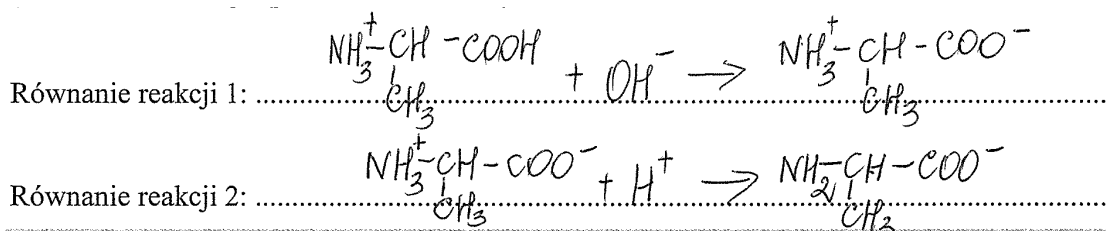 Równanie reakcji 1: NH₃⁺-CH-COOH + OH⁻ → NH₃⁺-CH-COO⁻
CH₃ CH₃
Równanie reakcji 2: NH₃⁺-CH-COO⁻ + H⁺ → NH₂-CH-COO⁻
CH₃ CH₃